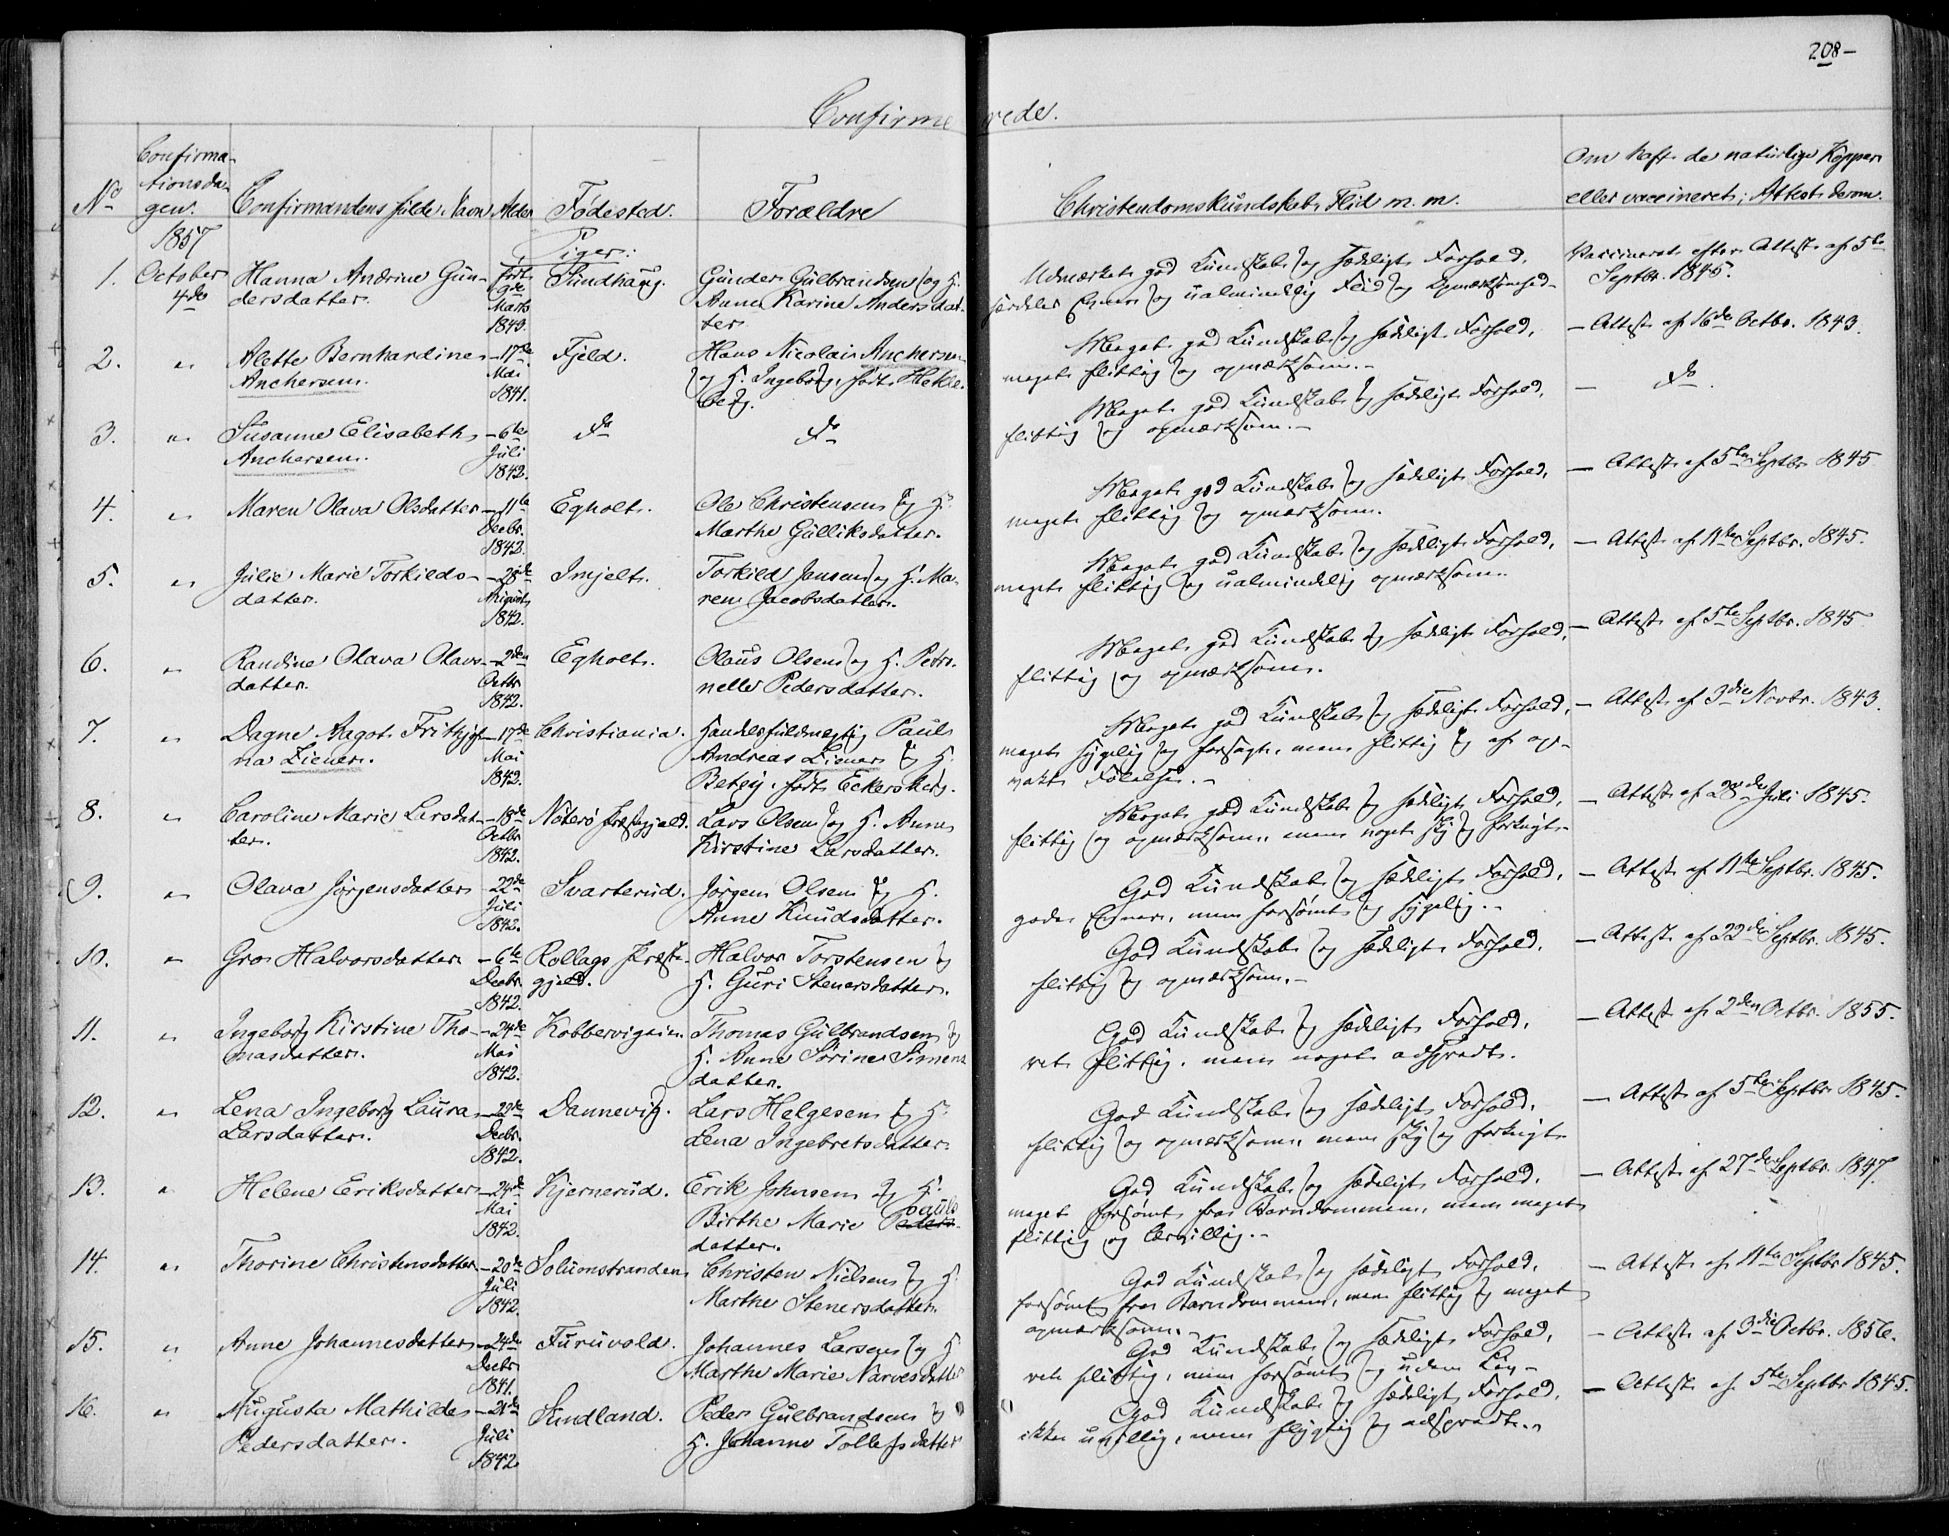 208-
Confirmerede.
No
Confirma-
tionsda-
gen.
Confirmandens fulde Navn
Alder
Fødested.
Forældre
Christendomskundskab, Flid m. m.
Om haft de naturlige Kopper
eller vaccineret; Attest derom.
1857
Piger:
1. October Hanna Andrine Gun- født Sundhaug. Gunder Gulbrandsen og H.
4de dersdatter. 9de Anne Karine Andersdat-
Marts ter
1843.
Udmærket god Kundskab og sædeligt Forhold,
særdeles Evner og ualmindelig Flid og Opmærksomhed-
Vaccineret efter Attest af 5te
Septbr. 1845.
2. " Alette Bernhardine - 17de Fjeld. Hans Nicolai Anchersen
Anchersen. Mai og H. Ingeborg, født Hekle-
1841. berg.
Meget god Kundskab og sædeligt Forhold,
meget flittig og opmærksom.-
- Attest af 16de Octbr. 1843.
3. " Susanne Elisabeth - 6te do do
Anchersen. Juli
1842.
Meget god Kundskab og sædeligt Forhold,
flittig og opmærksom.-
- do.
4. " Maren Olava Olsdatter - 11te Egholt. Ole Christensen og H.
Decbr. Marthe Gulliksdatter.
1842.
Meget god Kundskab og sædeligt Forhold,
meget flittig og opmærksom.
- Attest af 5te Septbr. 1845
5. " Julie Marie Torkilds- - 28de Imjelt. Torkild Jensen og H. Ma-
datter. August ren Jacobsdatter.
1842.
Meget god Kundskab og sædeligt Forhold,
meget flittig og ualmindelig opmærksom.
- Attest af 11te Septbr. 1845.
6. " Randine Olava Olaus- - 2den Egholt. Olaus Olsen og H. Petro-
datter. Octbr. nelle Pedersdatter.
1842.
Meget god Kundskab og sædeligt Forhold,
flittig og opmærksom.
- Attest af 5te Septbr. 1845.
7. " Dagne Aagot Frithjof- - 17de Christiania. Handelsfuldmegtig Paul
na Liener. Mai Andreas Liener og H.
1842. Betzy, født Eckersberg.
Meget god Kundskab og sædeligt Forhold,
meget sygelig og forsagt, men flittig og af op-
vakt Følelse.-
- Attest af 3die Novbr. 1843.
8. " Caroline Marie Larsdat- - 18de Nøterø Præstegjæld. Lars Olsen og H. Anne
ter. Octbr. Kirstine Larsdatter.
1842.
Meget god Kundskab og sædeligt Forhold,
flittig og opmærksom, men noget sky og forknyt.
- Attest af 28de Juli 1845.
9. " Olava Jørgensdatter - 22de Svarterud. Jørgen Olsen og H.
Juli Anne Knudsdatter.
1842.
God Kundskab og sædeligt Forhold,
gode Evner, men forsømt og sygelig.-
- Attest af 11te Septbr. 1845.
10. " Gro Halvorsdatter - 6te Rollags Præste- Halvor Torstensen og
Decbr. gjæld. H. Guri Stenersdatter.
1842.
God Kundskab og sædeligt Forhold,
flittig og opmærksom.-
- Attest af 22de Septbr. 1845.
11. " Ingeborg Kirstine Tho- - 24de Kobbervigeien Thomas Gulbrandsen og
masdatter. Mai H. Anne Sørine Simens
1842. datter.
God Kundskab og sædeligt Forhold,
ret flittig, men noget adspredt.
- Attest af 2den Octbr. 1855.
12. " Lena Ingeborg Laura - 29de Dannevig. Lars Helgesen og H.
Larsdatter. Decbr. Lena Ingebretsdatter.
1842.
God Kundskab og sædeligt Forhold,
flittig og opmærksom, men sky og forknyt.
- Attest af 5te Septbr. 1845.
13. " Helene Eriksdatter - 24de Kjernerud. Erik Johnsen og H.
Mai Birthe Marie Peders- Pauls
1842. datter.
God Kundskab og sædeligt Forhold,
meget forsømt fra Barndommen, men meget
flittig og lærvillig.-
- Attest af 27de Septbr. 1847.
14. " Thorine Christensdatter - 20de Solumstranden Christen Nielsen og H.
Juli Marthe Stenersdatter.
1842.
God Kundskab og sædeligt Forhold,
forsømt fra Barndommen, men flittig og meget
opmærksom.
- Attest af 11te Septbr 1845.
15. " Anne Johannesdatter - 24de Furuvold. Johannes Larsen og H.
Decbr. Marthe Marie Narvesdatter
1841.
God Kundskab og sædeligt Forhold,
ret flittig, men forsømt og uden
- Attest af 3die Octbr. 1856.
16. " Augusta Mathilde - 21de Sundland. Peder Gulbrandsen og
Pedersdatter. Juli H. Johanne Tollefsdatter
1842
God Kundskab og sædeligt Forhold,
ikke uvillig, men flygtig og adspredt.
- Attest af 5te Septbr 1845.